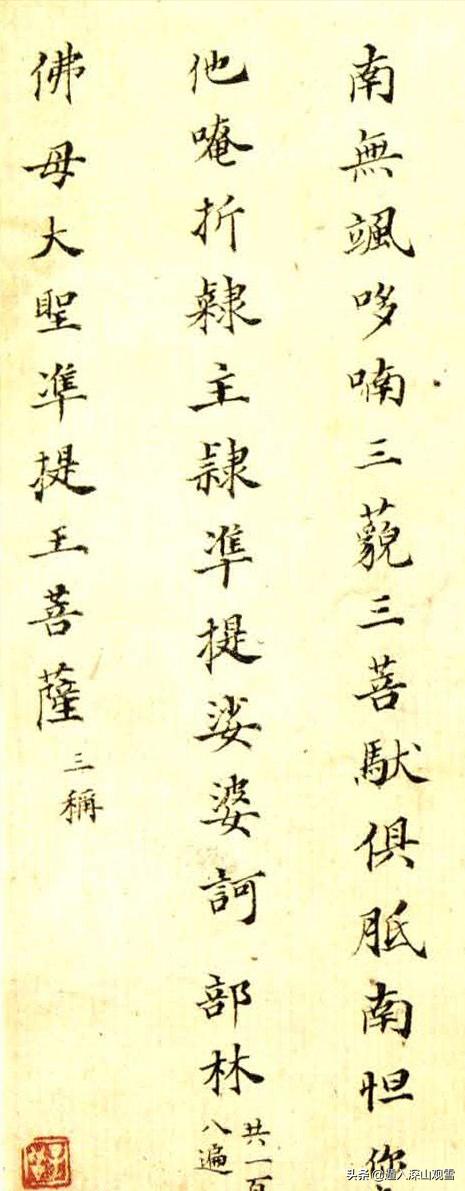 南無颯哆喃三藐三菩馱俱胝南怛你
他唵折隸主隸準提娑婆訶部林
共一百
八遍
佛母大聖準提王菩薩
三稱
头条@遁入深山观雪